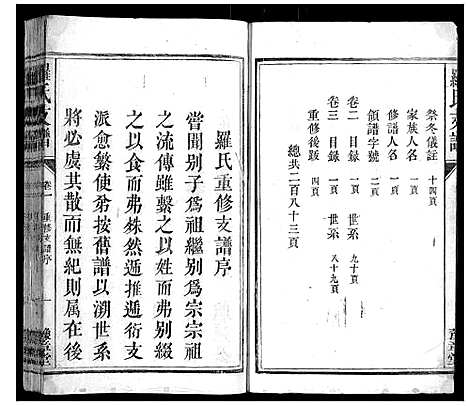 羅氏支譜
祭冬儀註 十四頁
家族人名 一頁
修譜人名 一頁
領譜字號 二頁
卷二 目錄 一頁 世系 九十頁
卷三 目錄 一頁 世系 八十九頁
重修後跋 四頁
總共二百八十三頁
豫章堂
羅氏重修支譜序
嘗聞别子為祖繼别為宗宗祖
之流傳雖繫之以姓而弗别綴
之以食而弗殊然遞推遞衍支
派愈繁使弟按舊譜以溯世系
將必虞其散而無紀則属在後
羅氏支譜
卷一
重修支譜序
豫章堂